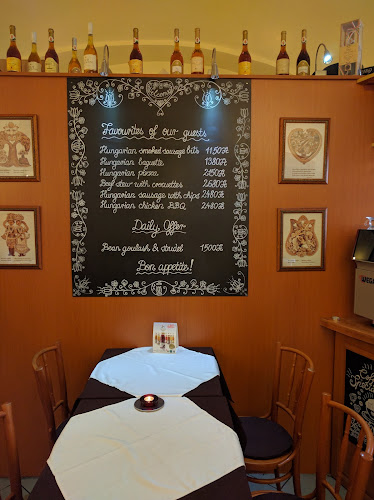 Favourites of our guests
Hungarian smoked sausage bits 1150Ft
Hungarian baguette 1380Ft
Hungarian pizza 2150Ft
Beef stew with croquettes 2680Ft
Hungarian sausage with chips 2480Ft
Hungarian chicken BBQ 2480Ft
Daily Offer
Bean goulash & strudel 1500Ft
Bon appetite!